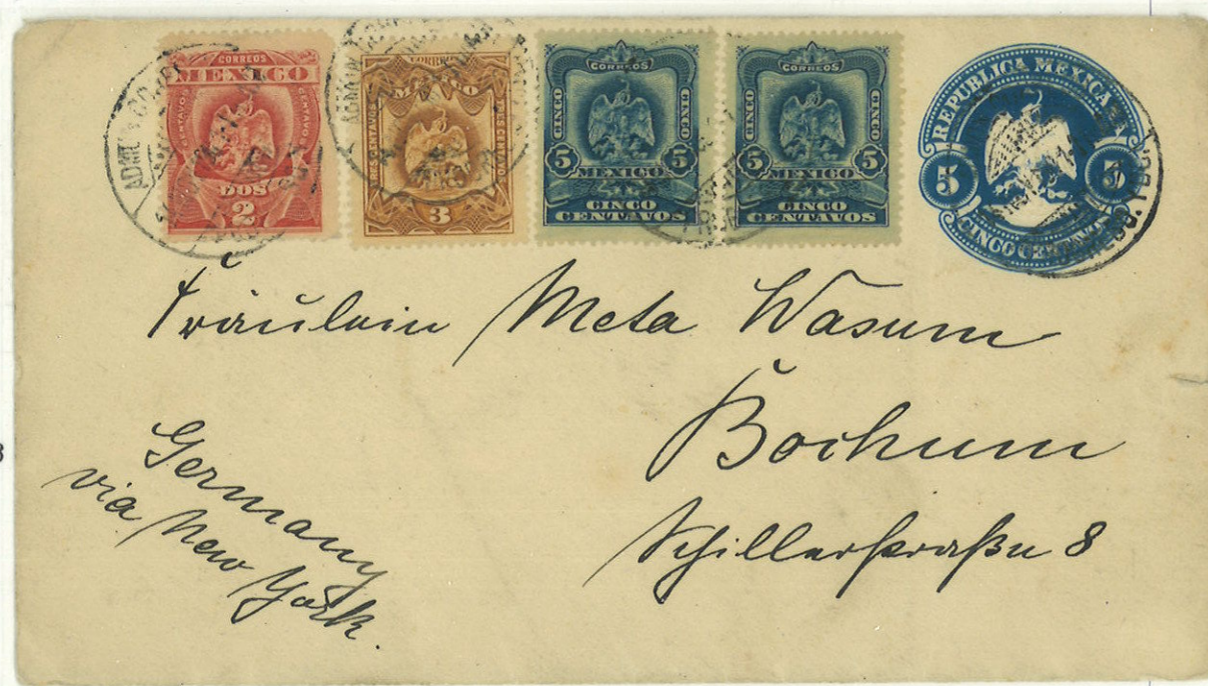 CORREOS
MEXICO
CENTAVOS
CENTAVOS
DOS
2
CORREOS
MEXICO
TRES CENTAVOS
TRES CENTAVOS
3
CORREOS
CINCO
CINCO
5 5
MEXICO
CINCO
CENTAVOS
CORREOS
CINCO
CINCO
5 5
MEXICO
CINCO
CENTAVOS
REPUBLICA MEXICANA
5 5
CINCO CENTAVOS
Fräulein Meta Wasum
Bochum
Schillerstraße 8
Germany
via New York.